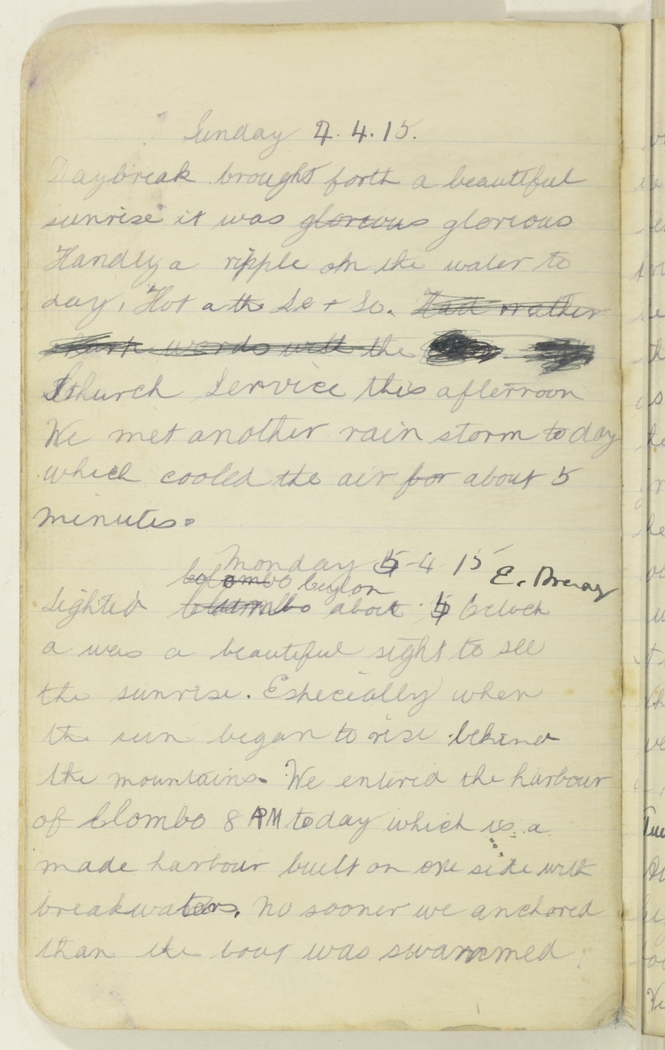 Sunday 4.4.15.
Daybreak brought forth a beautiful
sunrise it was glorious glorious
Handly a ripple on the water to
day. Hot a the Se + So. Had rather
words with the
Church Service this afternoon
We met another rain storm to day
which cooled the air for about 5
minutes.
Monday 5-4 15
Colombo Ceylon
Sighted Clumbo about 5 Oclock
a was a beautiful sight to see
the sunrise. Especially when
the sun began to rise behind
the mountains. We entered the harbour
of Clombo 8 AM today which is a
made harbour built on one side with
breakwaters. No sooner we anchored
than the boat was swammed